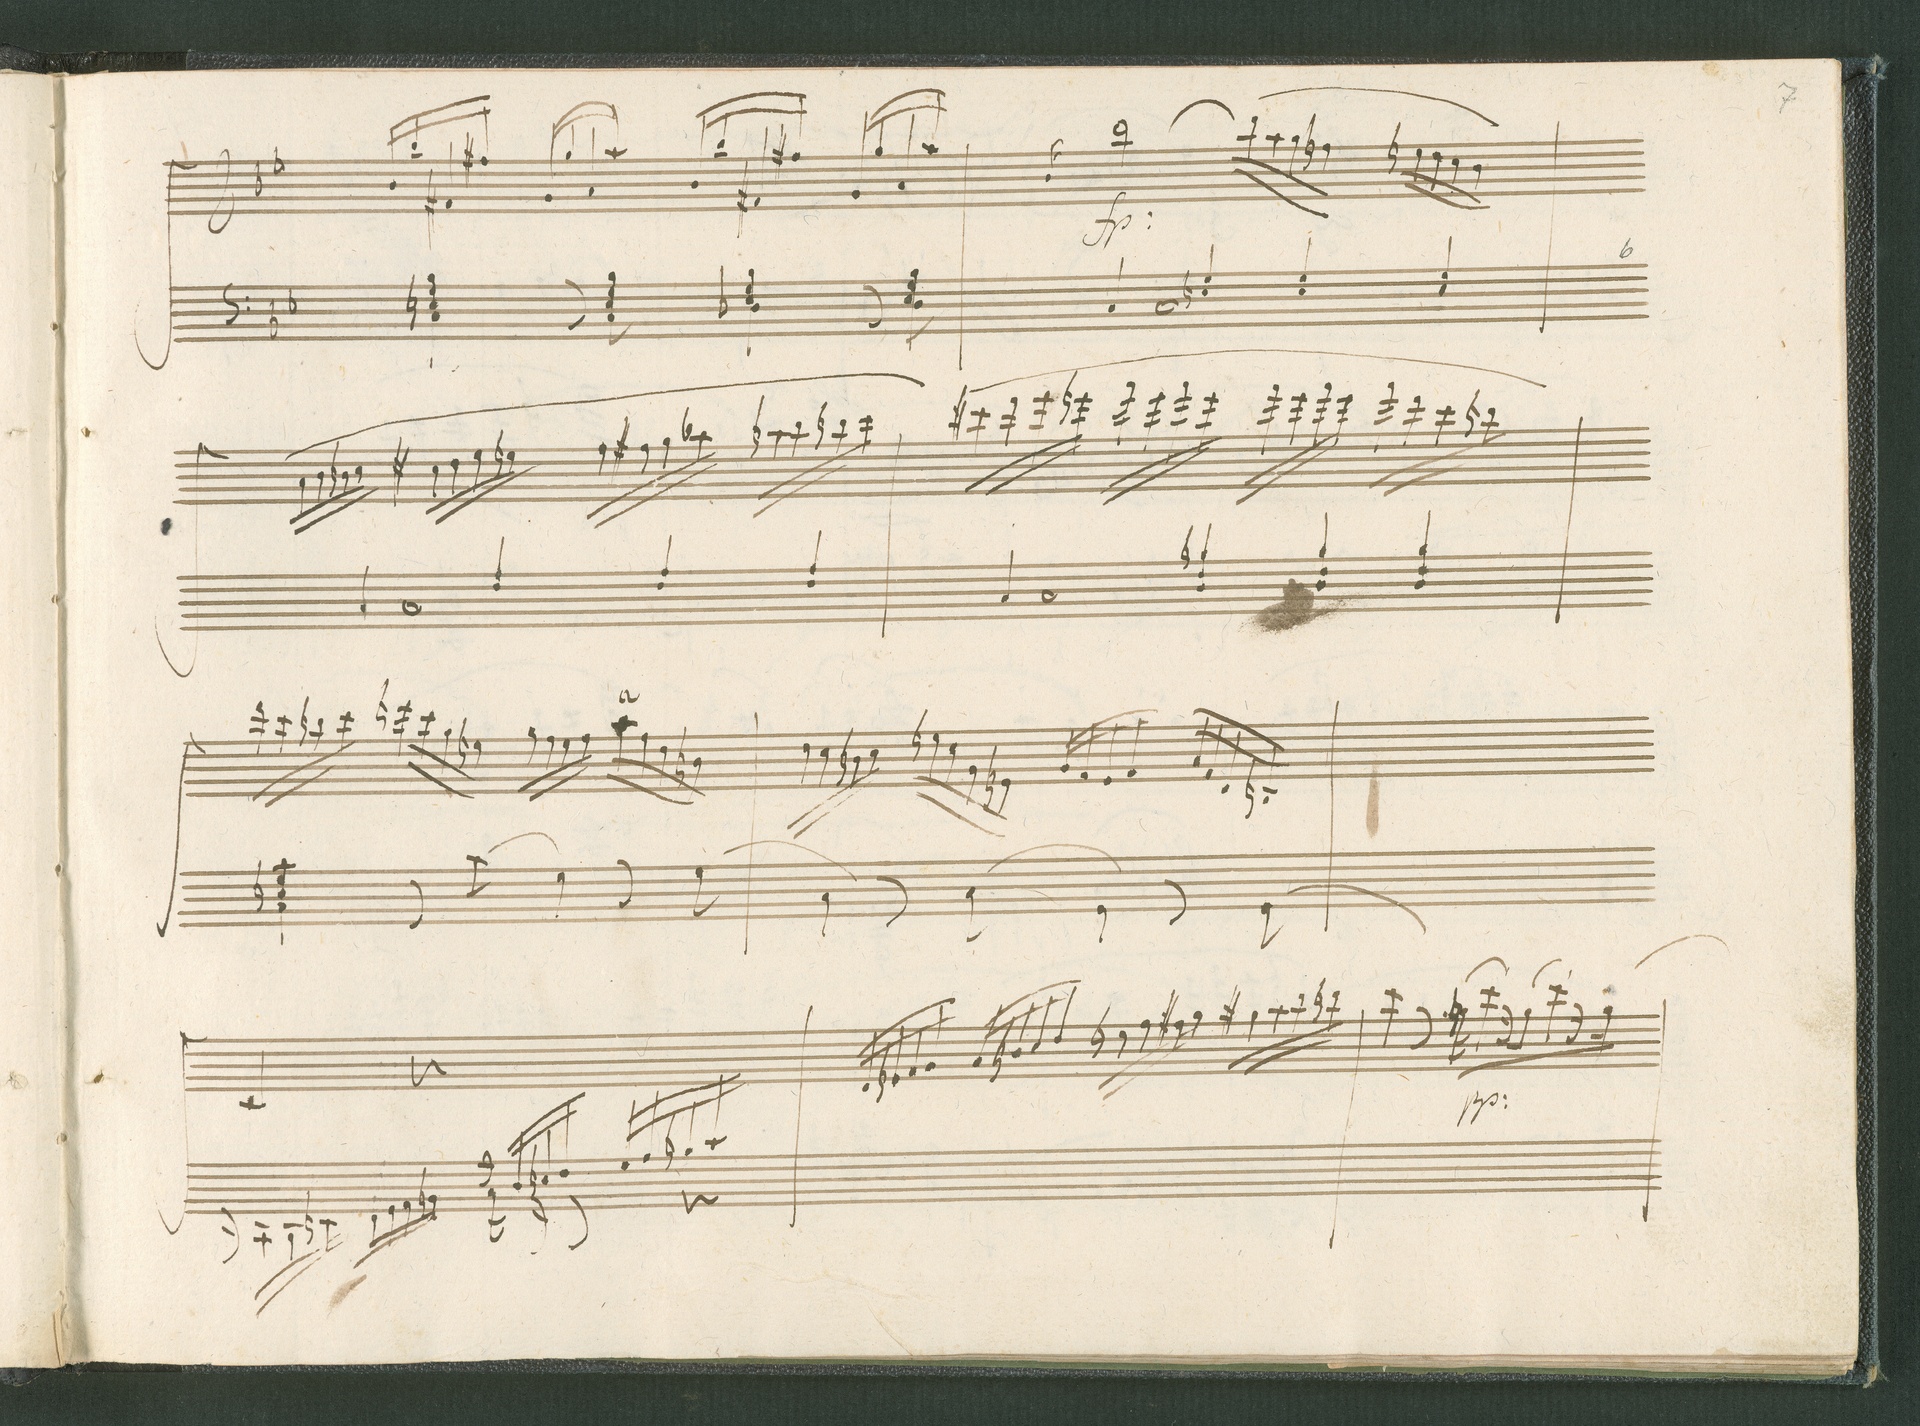 7
fp:
6
pp: